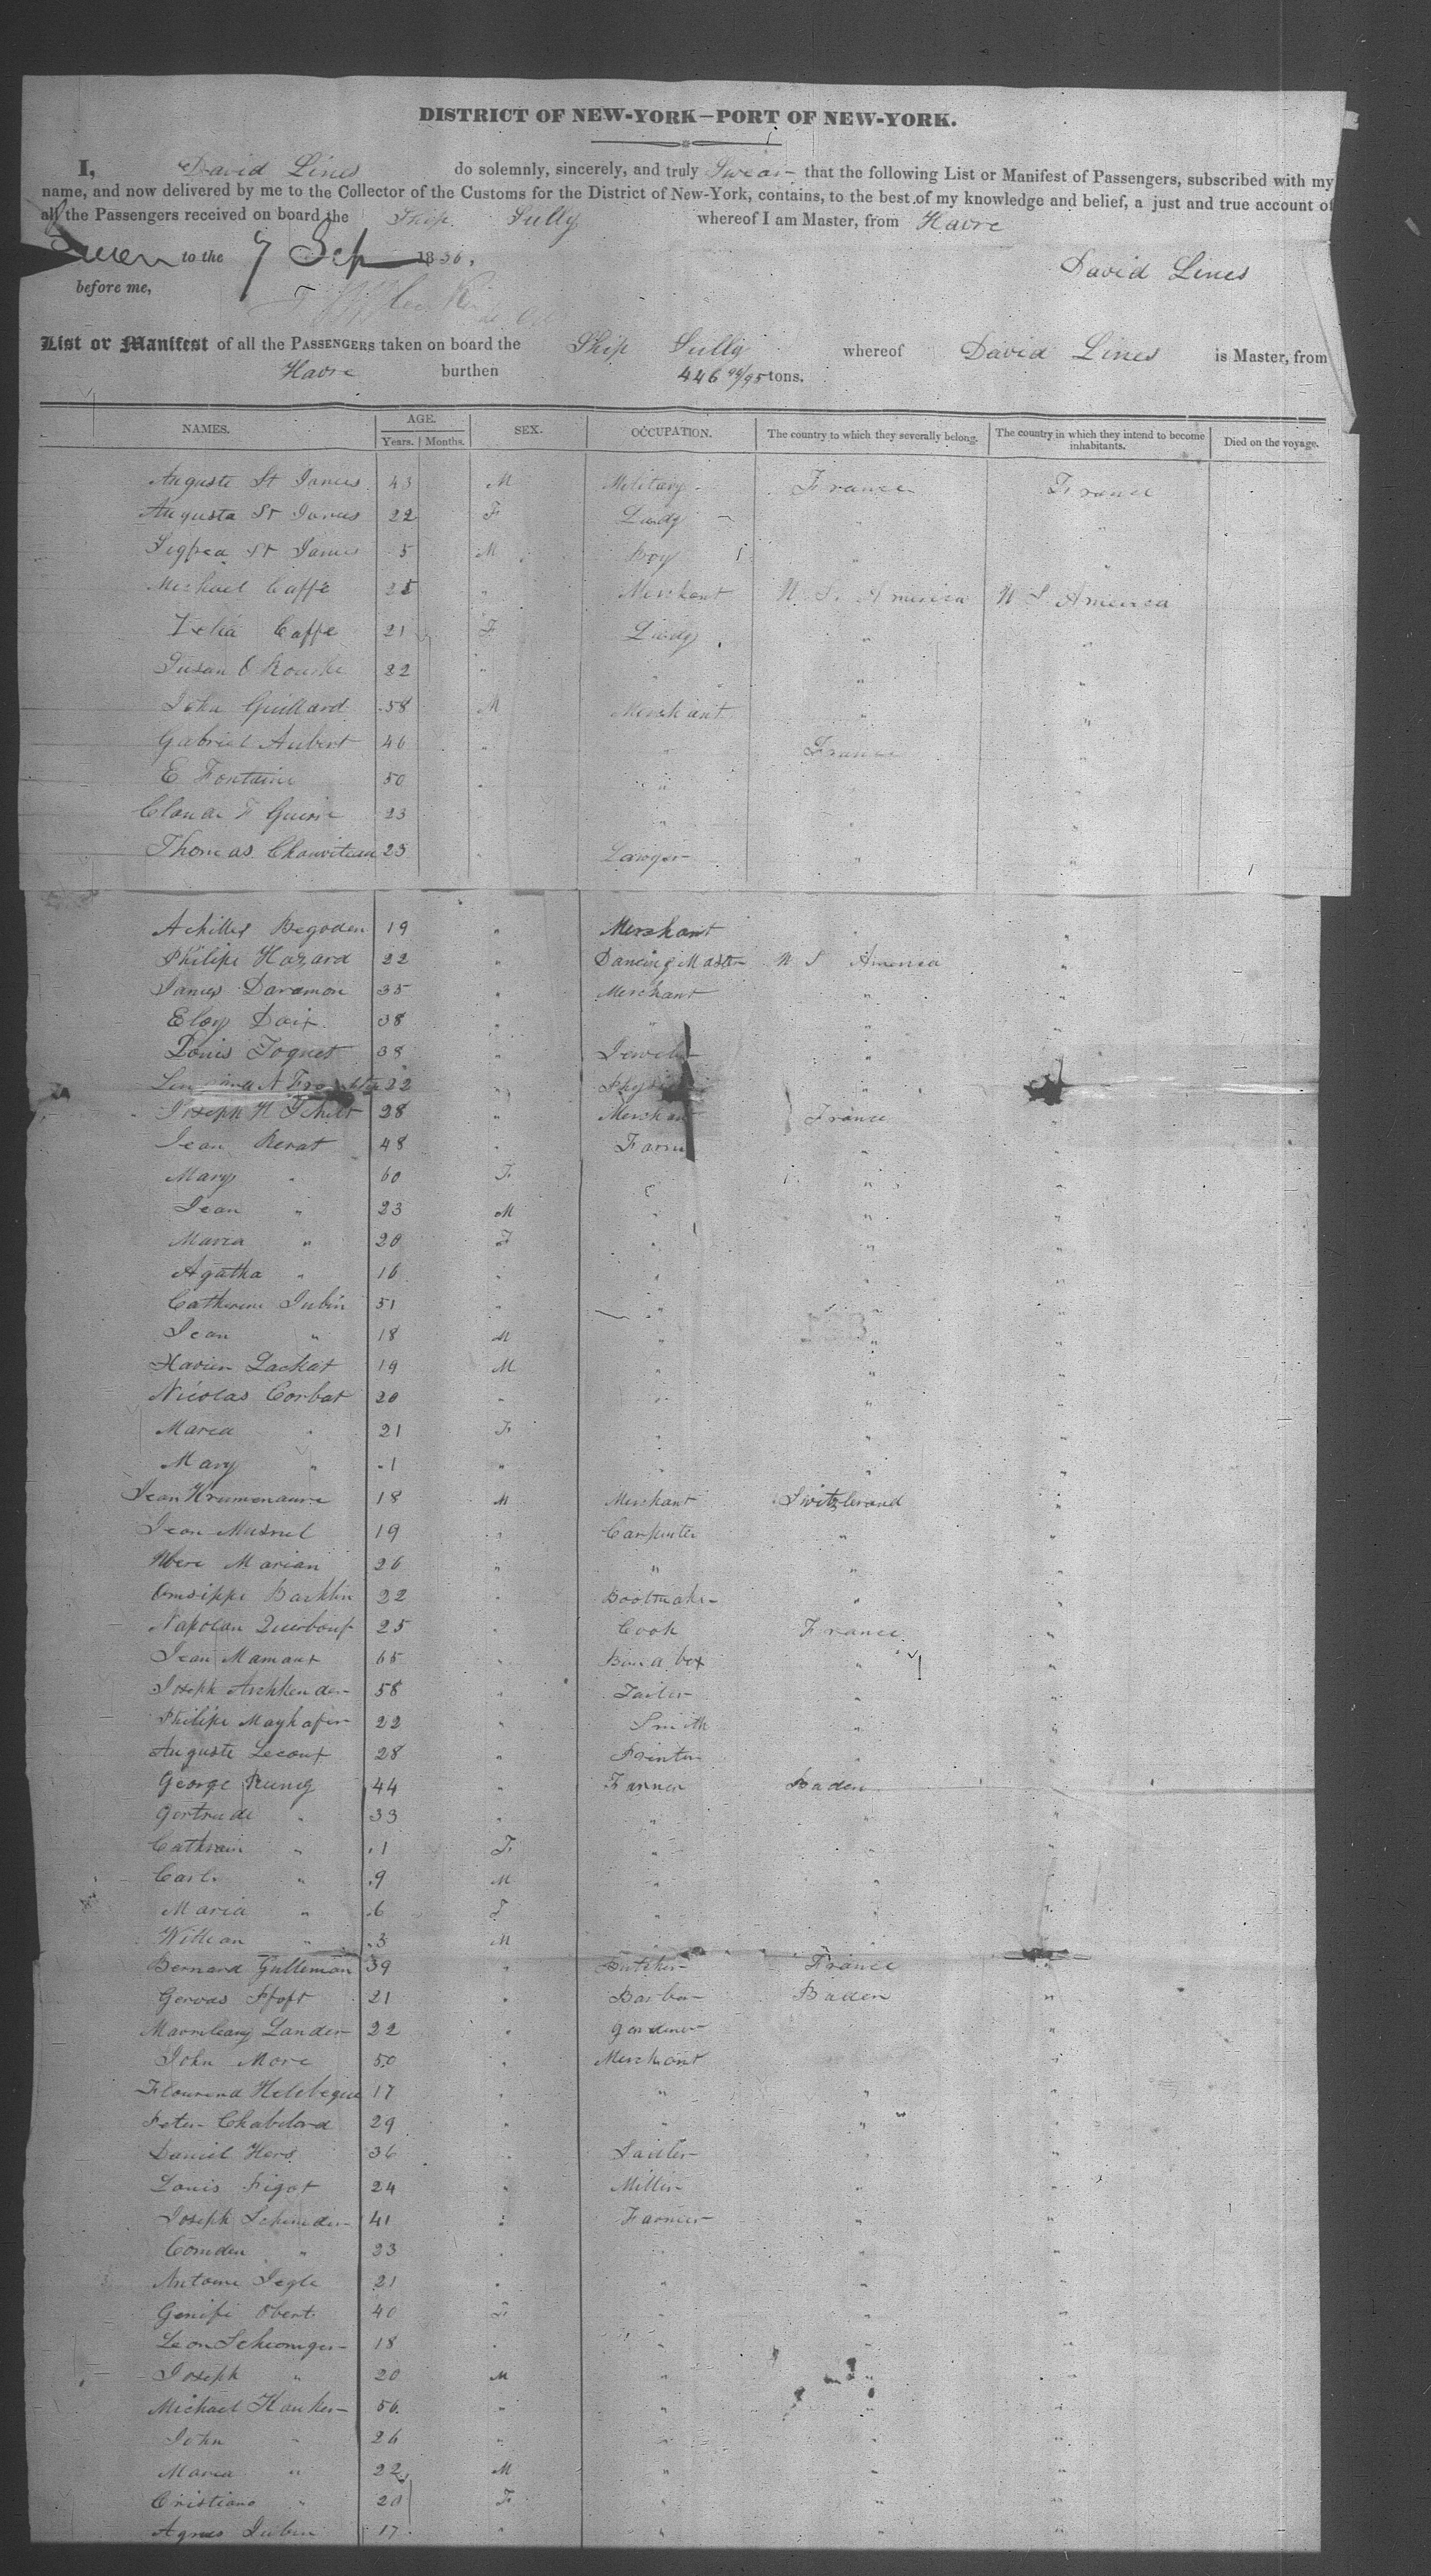 DISTRICT OF NEW-YORK—PORT OF NEW-YORK.
I, David Lines do solemnly, sincerely, and truly Swear that the following List or Manifest of Passengers, subscribed with my
name, and now delivered by me to the Collector of the Customs for the District of New-York, contains, to the best of my knowledge and belief, a just and true account of
all the Passengers received on board the Ship Sully whereof I am Master, from Havre
Sworn to the 7 Sep 1836.
David Lines
before me,
List or Manifest of all the PASSENGERS taken on board the Ship Sully whereof David Lines is Master, from
Havre burthen 446 94/95 tons.
NAMES. AGE. Years. Months. SEX. OCCUPATION. The country to which they severally belong. The country in which they intend to become inhabitants. Died on the voyage.
Auguste St James 43 M Military France France
Augusta St James 22 F Lady " "
St James 5 M Boy " "
Michael Caffe 25 " Merchant U. S. America U S America
Zelia Caffe 21 F Lady " "
Susan O Rourke 22 " " " "
John Guillard 58 M Merchant " "
Gabriel Aubert 46 " " France "
E Fontaine 50 " " "
Claude F Guerin 23 " " "
Thomas Chauviteau 23 " Lawyer " "
Achilles Begoden 19 " Merchant " "
Philipe Hazard 22 " Dancing Master U S America "
James Daramon 35 " Merchant " "
Eloy Daix 38 " " " "
Louis Foquet 38 " Jeweler " "
22 " "
Joseph H Schilt 28 " Merchant France "
Jean Rerat 48 " Farm " "
Mary " 60 F " " "
Jean " 23 M " " "
Maria " 20 F " " "
Agatha " 16 " " " "
Catherine Jubin 51 " " " "
Jean " 18 M " " "
Xavier Lachat 19 M " " "
Nicolas Corbat 20 " " " "
Maria " 21 F " " "
Mary " 1 " " " "
Jean Krumenaure 18 M Merchant Switzlerand "
Jean Musnel 19 " Carpenter " "
Marian 26 " " " "
Barklin 22 " Bootmaker " "
Napolan Querbouf 25 " Cook France "
Jean Mamaux 65 " " "
Joseph Aschkender 58 " Tailer " "
Philipe Mayhafer 22 " Smith " "
Auguste Lecouf 28 " Printer " "
George Runig 44 " Farmer Baden "
Gertrude " 33 " " " "
Cathrain " 1 F " " "
Carl " 9 M " " "
Maria " 6 F " " "
William " 3 M " " "
Bernard Gulleman 39 " Butcher France "
Gervas Pfoft 21 " Barber Baden "
Lander 22 " Gardiner "
John More 50 " Merchant "
Helebeque 17 " " " "
Peter Chabelard 29 " " " "
Daniel Hers 36 " Sadler " "
Louis Pigot 24 " Miller " "
Joseph Schneder 41 " Farmer " "
Comden " 33 " " " "
Antoine Jegle 21 " " " "
Genife Obert 40 F " " "
Leon Schionger 18 " " " "
Joseph " 20 M " " "
Michael Hauker 56 " " " "
John " 26 " " " "
Maria " 22 M " " "
Cristiane " 20 F " " "
Agnes Jubin 17 " " " "